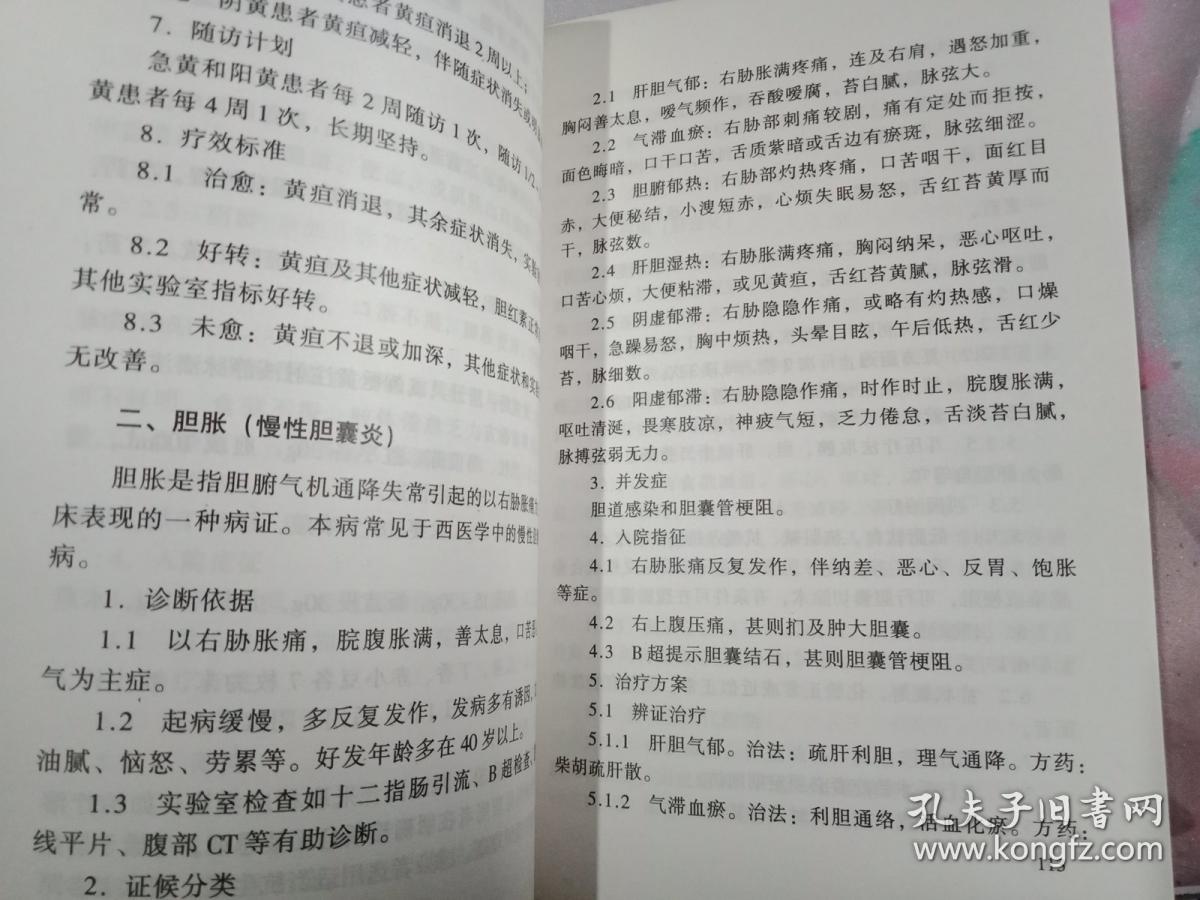 黄疸消退2周以上；
阴黄患者黄疸减轻，伴随症状消失或
7. 随访计划
急黄和阳黄患者每2周随访1次，随访1/2
黄患者每4周1次，长期坚持。
8. 疗效标准
8.1 治愈：黄疸消退，其余症状消失，实
常。
8.2 好转：黄疸及其他症状减轻，胆红素正
其他实验室指标好转。
8.3 未愈：黄疸不退或加深，其他症状和实
无改善。
二、胆胀（慢性胆囊炎）
胆胀是指胆腑气机通降失常引起的以右胁胀痛
床表现的一种病证。本病常见于西医学中的慢性
病。
1. 诊断依据
1.1 以右胁胀痛，脘腹胀满，善太息，口苦
气为主症。
1.2 起病缓慢，多反复发作，发病多有诱因，
油腻、恼怒、劳累等。好发年龄多在40岁以上。
1.3 实验室检查如十二指肠引流、B超检查、
线平片、腹部CT等有助诊断。
2. 证候分类
2.1 肝胆气郁：右胁胀满疼痛，连及右肩，遇怒加重，
胸闷善太息，嗳气频作，吞酸嗳腐，苔白腻，脉弦大。
2.2 气滞血瘀：右胁部刺痛较剧，痛有定处而拒按，
面色晦暗，口干口苦，舌质紫暗或舌边有瘀斑，脉弦细涩。
2.3 胆腑郁热：右胁部灼热疼痛，口苦咽干，面红目
赤，大便秘结，小溲短赤，心烦失眠易怒，舌红苔黄厚而
干，脉弦数。
2.4 肝胆湿热：右胁胀满疼痛，胸闷纳呆，恶心呕吐，
口苦心烦，大便粘滞，或见黄疸，舌红苔黄腻，脉弦滑。
2.5 阴虚郁滞：右胁隐隐作痛，或略有灼热感，口燥
咽干，急躁易怒，胸中烦热，头晕目眩，午后低热，舌红少
苔，脉细数。
2.6 阳虚郁滞：右胁隐隐作痛，时作时止，脘腹胀满，
呕吐清涎，畏寒肢凉，神疲气短，乏力倦怠，舌淡苔白腻，
脉搏弦弱无力。
3. 并发症
胆道感染和胆囊管梗阻。
4. 入院指征
4.1 右胁胀痛反复发作，伴纳差、恶心、反胃、饱胀
等症。
4.2 右上腹压痛，甚则扪及肿大胆囊。
4.3 B超提示胆囊结石，甚则胆囊管梗阻。
5. 治疗方案
5.1 辨证治疗
5.1.1 肝胆气郁。治法：疏肝利胆，理气通降。方药：
柴胡疏肝散。
5.1.2 气滞血瘀。治法：利胆通络，活血化瘀。方药：
孔夫子旧书网
www.kongfz.com